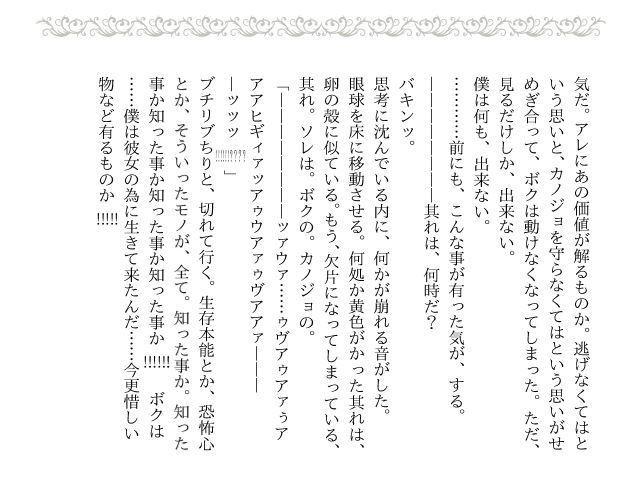 気だ。アレにあの価値が解るものか。逃げなくてはと
いう思いと、カノジョを守らなくてはという思いがせ
めぎ合って、ボクは動けなくなってしまった。ただ、
見るだけしか、出来ない。
僕は何も、出来ない。
…………前にも、こんな事が有った気が、する。
――――――――其れは、何時だ？
バキンッ。
思考に沈んでいる内に、何かが崩れる音がした。
眼球を床に移動させる。何処か黄色がかった其れは、
卵の殻に似ている。もう、欠片になってしまっている、
其れ。ソレは。ボクの。カノジョの。
「――――――――ッァウァ……ゥヴアゥアァぅア
アアヒギィアッアゥウアァゥヴアアァ―――
―ッッッ!!!!!!????」
ブチリブちりと、切れて行く。生存本能とか、恐怖心
とか、そういったモノが、全て。知った事か。知った
事か知った事か知った事か知った事か!!!!!!　ボクは
……僕は彼女の為に生きて来たんだ……今更惜しい
物など有るものか!!!!!